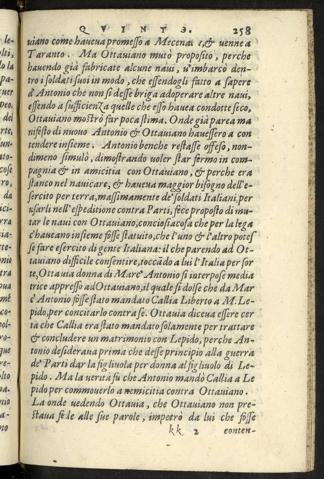 QVINTO. 258
uiano come haueua promesso a Mecenate, & uenne a
Taranto. Ma Ottauiano mutò proposito, perche
hauendo già fabricate alcune naui, u'imbarcò den-
tro i soldati suoi in modo, che essendogli fatto a sapere
d'Antonio che non si desse briga adoperare altre naui,
essendo a sufficienza quelle che esso hauea condotte seco,
Ottauiano mostrò far poca stima. Onde già parea ma
nifesto di nuouo Antonio & Ottauiano hauessero a con
tendere insieme. Antonio benche restasse offeso, non-
dimeno simulò, dimostrando uoler star fermo in com-
pagnia & in amicitia con Ottauiano, & perche era
stanco nel nauicare, & haueua maggior bisogno dell'e-
sercito per terra, massimamente de' soldati Italiani, per
usarli nell'espeditione contra Parti, fece proposito di mu-
tar le naui con Ottauiano, conciosiacosa che per la lega
c'haueano insieme fosse statuito, che l'uno & l'altro potes
se fare esercito di gente Italiana: il che parendo ad Ot-
tauiano difficile consentire, toccādo a lui l'Italia per sor
te, Ottauia donna di Marc'Antonio si interpose media
trice appresso ad Ottauiano, il quale si dolse che da Mar
c'Antonio fosse stato mandato Callia Liberto a M. Le-
pido, per concitarlo contra se. Ottauia diceua essere cer
ta che Callia era stato mandato solamente per trattare
& concludere un matrimonio con Lepido, perche An-
tonio desideraua prima che desse principio alla guerra
de' Parti dar la figliuola per donna al figliuolo di Le-
pido. Ma la uerità fù che Antonio mandò Callia a Le
pido per commouerlo a nemicitia contra Ottauiano.
La onde uedendo Ottauia, che Ottauiano non pre-
staua fede alle sue parole, impetrò da lui che fosse
kk 2 conten-